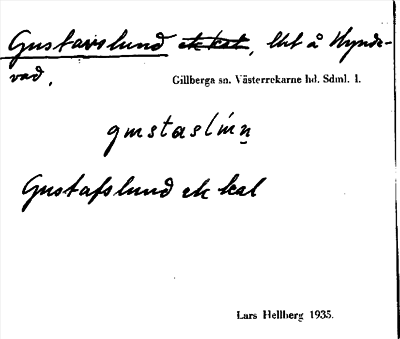 Gustavslund ek kal, lht å Hynde-
vad.
Gillberga sn. Västerrekarne hd. Sdml. 1.
gustaslún̥
Gustafslund ek kal
Lars Hellberg 1935.